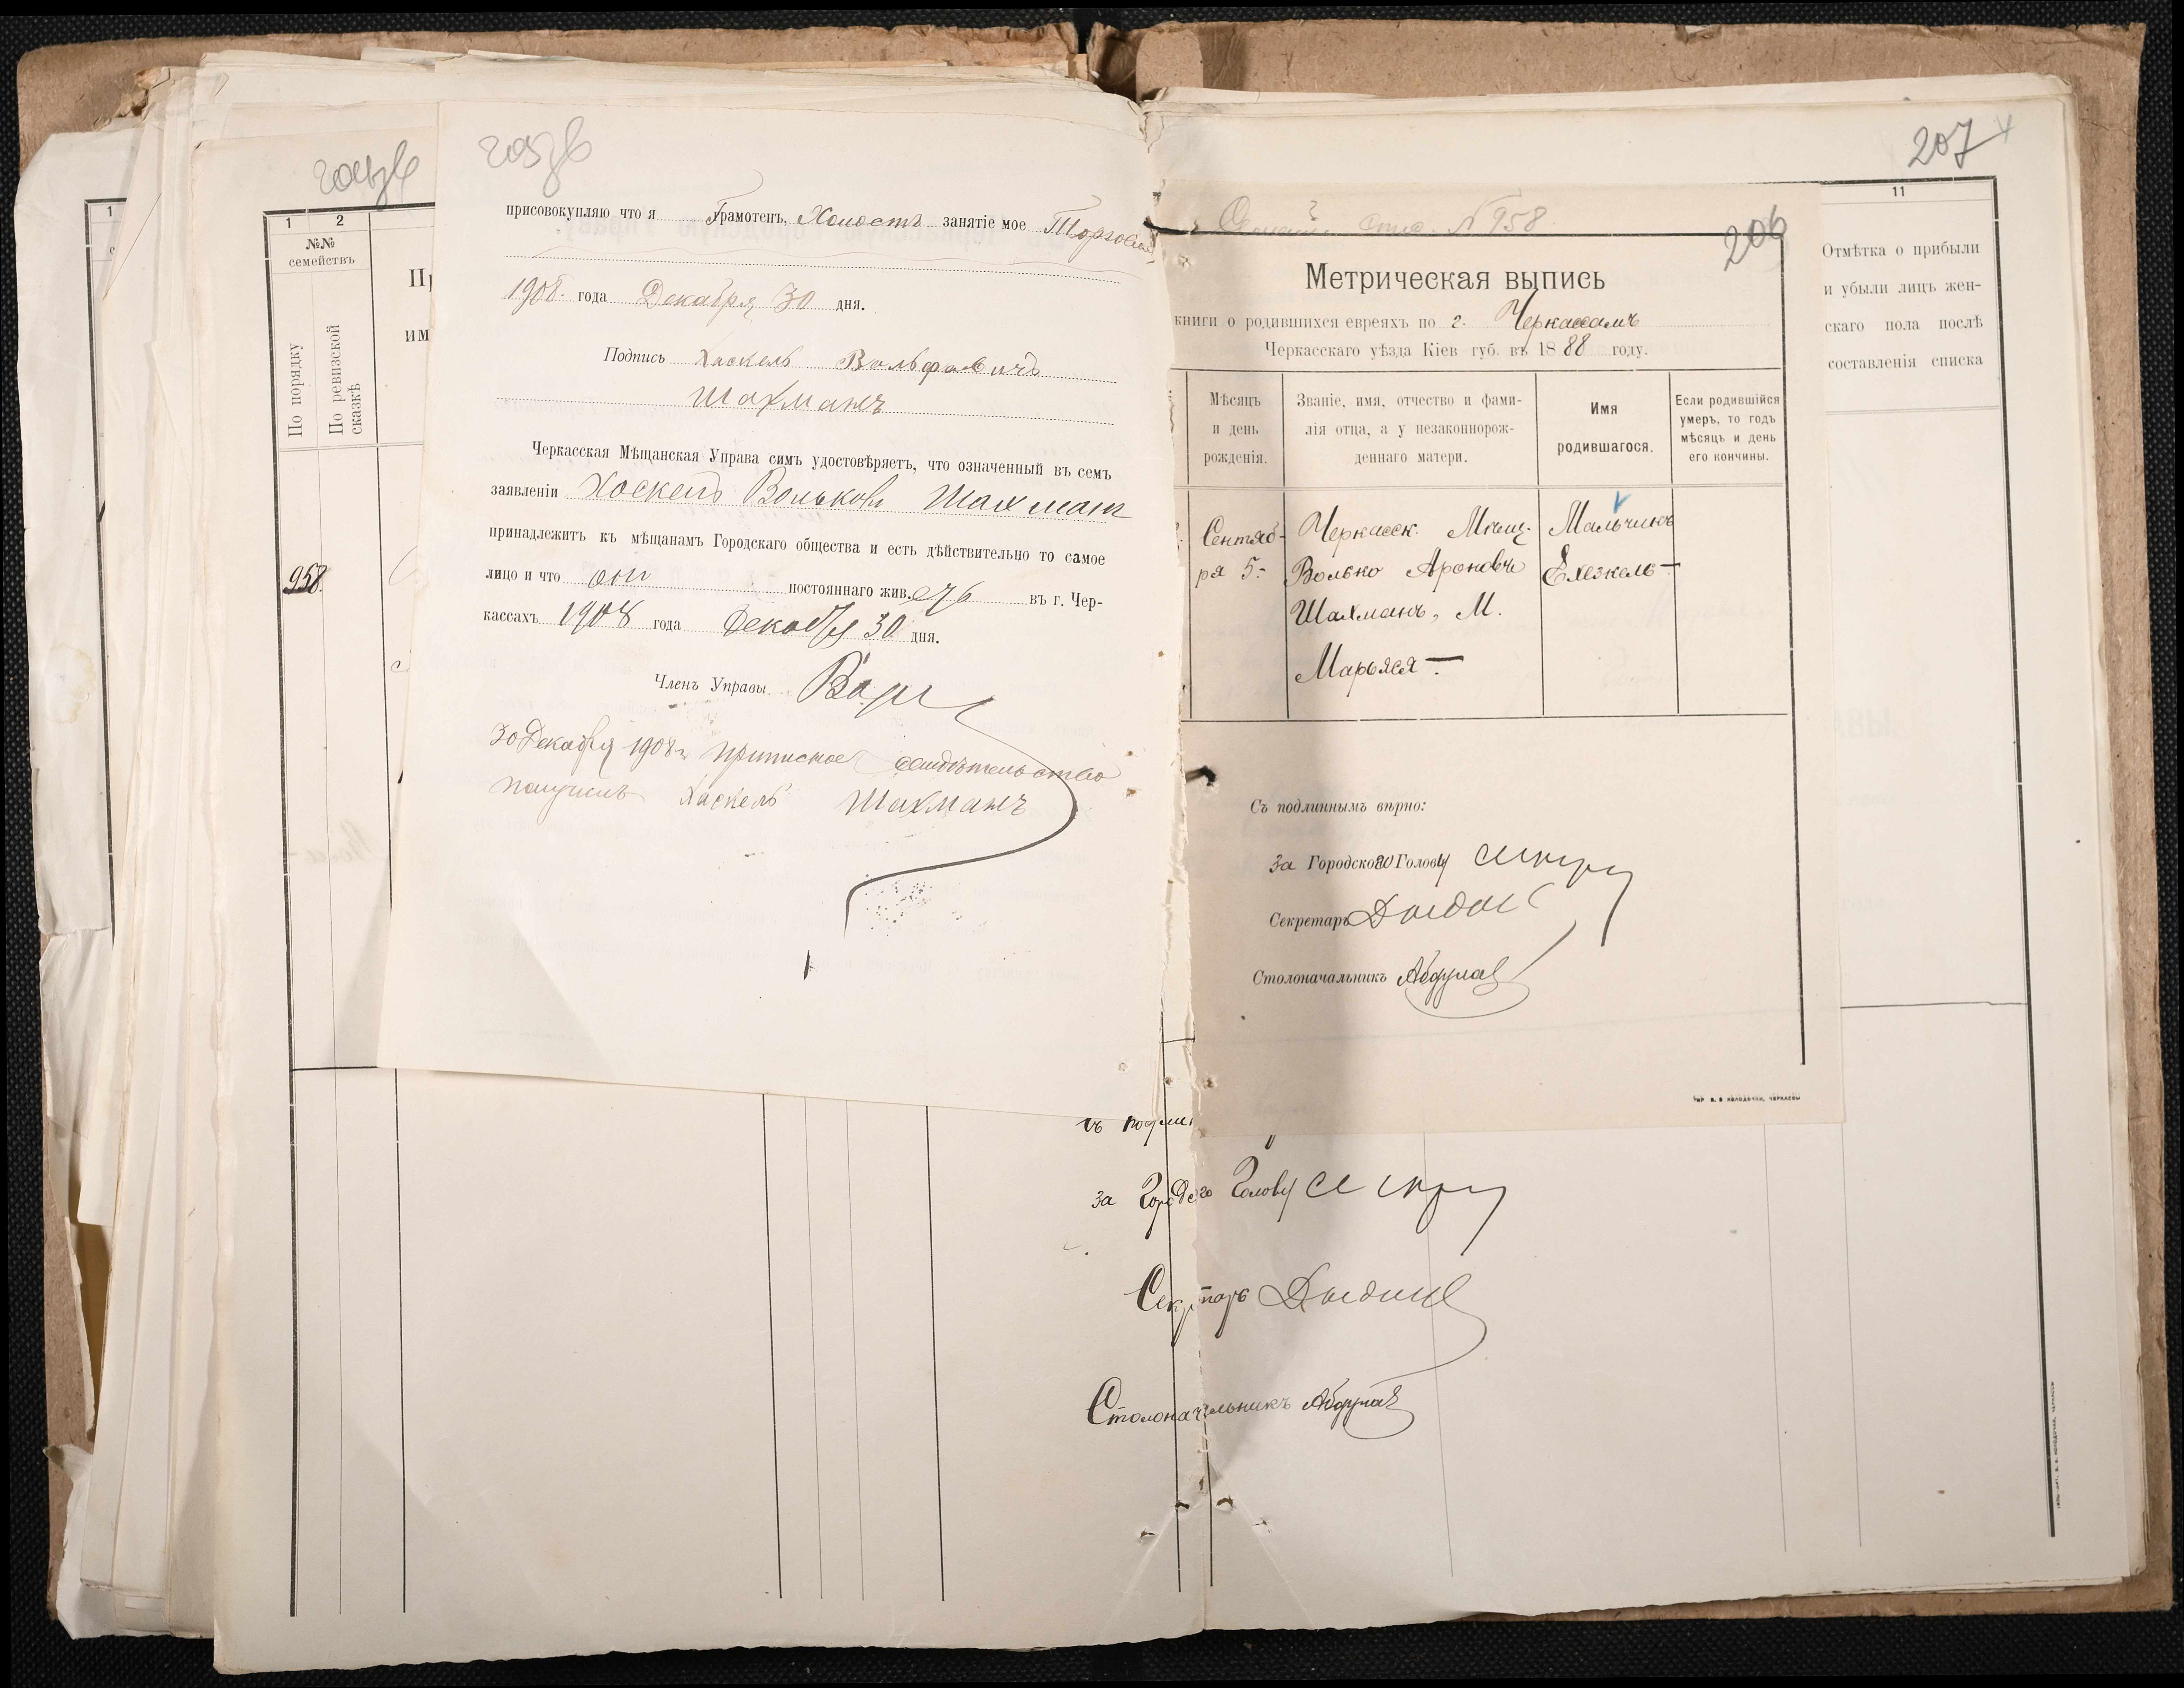 205 об
присовокупляю что я Грамотенъ, Холостъ занятіе мое Торговля
1908. года Декабря 30 дня.
Подпись Хаскель Вольфовичъ
Шахманъ
Черкасская Мѣщанская Управа симъ удостовѣряетъ, что означенный въ семъ
заявленіи Хаскель Вольковъ Шахман
принадлежитъ къ мѣщанамъ Городскаго общества и есть дѣйствительно то самое
лицо и что он постояннаго жив.етъ въ г. Чер-
кассахъ 1908 года Декабря 30 дня.
Членъ Управы
30 Декабря 1908 г. приписное свидѣтельство
получилъ Хаскель Шахманъ
1 2
№№
семействъ
По порядку
По ревизской
сказкѣ
958.
206
№ 958.
Метрическая выпись
книги о родившихся евреяхъ по г. Черкассамъ
Черкасскаго уѣзда Кіев губ. въ 1888 году.
Мѣсяцъ
и день
рожденія.
Званіе, имя, отчество и фами-
лія отца, а у незаконнорож-
деннаго матери.
Имя
родившагося.
Если родившійся
умеръ, то годъ
мѣсяцъ и день
его кончины.
Сентяб-
ря 5-
Черкасск. Мѣщ.
Волько Ароновъ
Шахманъ, М.
Марьяся -
Мальчикъ
Ехезкель -
Съ подлиннымъ вѣрно:
За Городского Голову
Секретарь
Столоначальникъ
207
11
Отмѣтка о прибыли
и убыли лицъ жен-
скаго пола послѣ
составленія списка
за Городского Голову
Секретарь
Столоначальникъ